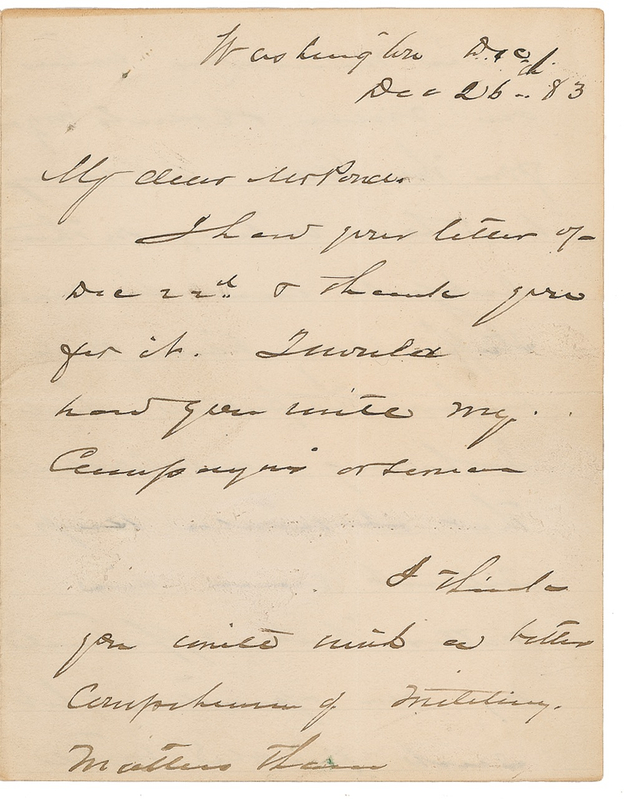 Washington D.C.
Dec 26th 83
My dear Mr Pond.
I have your letter of
Dec 22d & thank you
for it. I would
have you write my
Campaigns or
I think
you write with a better
Comprehension of Military
Matters than